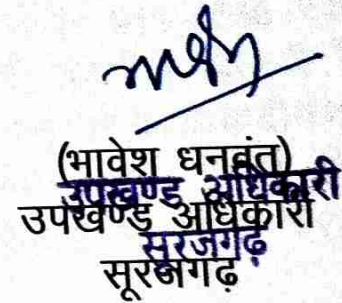 (भावेश धनवंत)
उपखण्ड अधिकारी
उपखण्ड अधिकारी
सूरजगढ़
सूरजगढ़